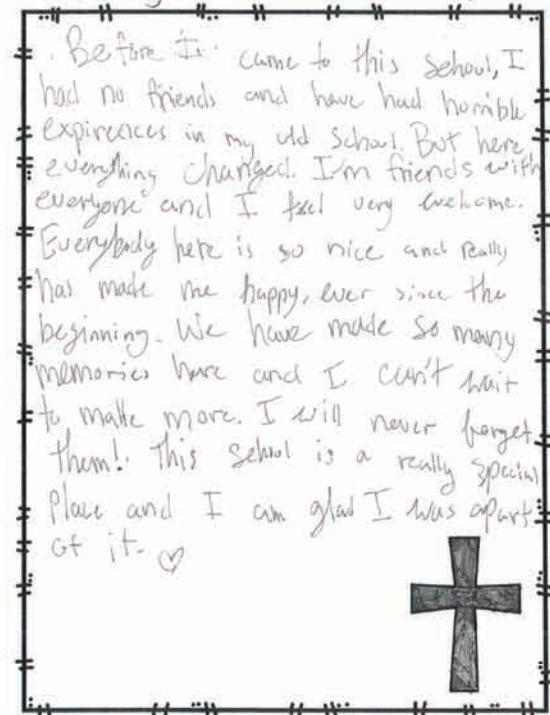 Before I came to this school, I
had no friends and have had horrible
expirences in my old school. But here
everything changed. I'm friends with
everyone and I feel very welcome.
Everybody here is so nice and really
has made me happy, ever since the
beginning. We have made so many
memories here and I can't wait
to make more. I will never forget
them! This school is a really special
Place and I am glad I was apart
of it. ♡